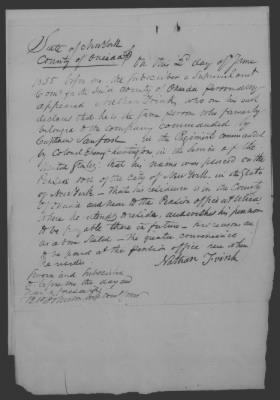 State of New York
County of Oneida } On this 3d day of June
1835 before me, the subscriber a Supreme Court
Comr for the said County of Oneida personally
appeared Nathan Frink, who on his oath
declares that he is the same person who formerly
belonged to the company commanded by
Captain Sanford in the Regiment commanded
by Colonel in the service of the
United States; that his name was placed on the
Pension roll of the City of New York, in the State
of New York – that his residence is in the County
of Oneida and near to the Pension office at Utica
where he intends to reside, and wishes his pension
to be payable there in future – are reasons
as above Stated – the greater convenience
to be paid at the pension office near where
he resides
Sworn and Subscribed
to before me the day and
year aforesaid
Nathan Frink